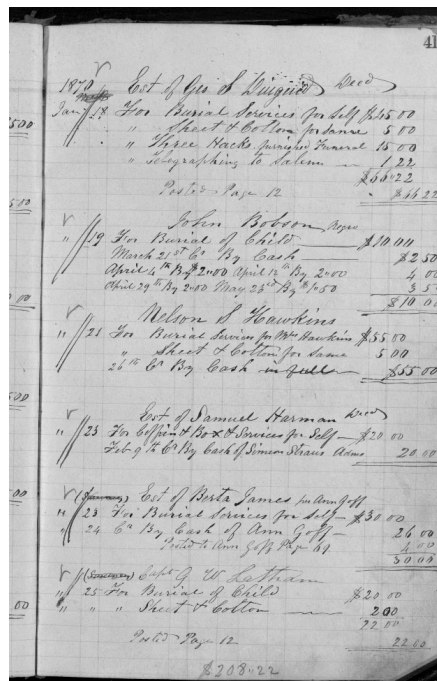 41
1870 Est of Geo S Diuguid Decd
Jan 18 For Burial Services for Self $45.00
" Sheet & Cotton for Same 5 00
" Three Hacks furnished Funeral 15 00
" Telegraphing to Salem 1 22
$66.22
Posted Page 12 $66 22
John Bobson
" 19 For Burial of Child $10.00
March 21st Cr By Cash $2 50
April 4th By $2.00 April 12th By 2.00 4 00
April 29th By 2.00 May 23rd By $1.50 3 50
$10 00
Nelson S Hawkins
" 21 For Burial Services for Mrs Hawkins $55.00
" Sheet & Cotton for Same 5 00
26th Cr By Cash in full $55.00
Est of Samuel Harman Decd
" 23 For Coffin & Box & Services for Self $20 00
Feb 9th Cr By Cash of Simeon Straus Adms 20.00
(January) Est of Berta James per Ann Goff
" 23 For Burial Services for Self $30.00
" 24 Cr By Cash of Ann Goff 26 00
Posted to Ann Goff Page 49 4 00
30 00
(January) Capt G. W. Latham
" 25 For Burial of Child $20 00
" " " Sheet & Cotton 2 00
22 00
Posted Page 12 22.00
$208.22